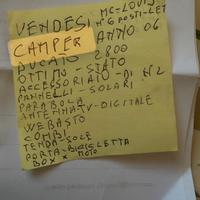 VENDESI MC-LOUIS
CAMPER N° 6 POSTI-LET
ANNO 06
DUCATO 2800
OTTIMO-STATO
ACCESSORIATO-DI N°2
PANNELLI-SOLARI
PARABOLA
ANTENNA-TV-DIGITALE
WEBASTO
COMBI
TENDA-SOLE
PORTA-BICICLETTA
BOX X MOTO